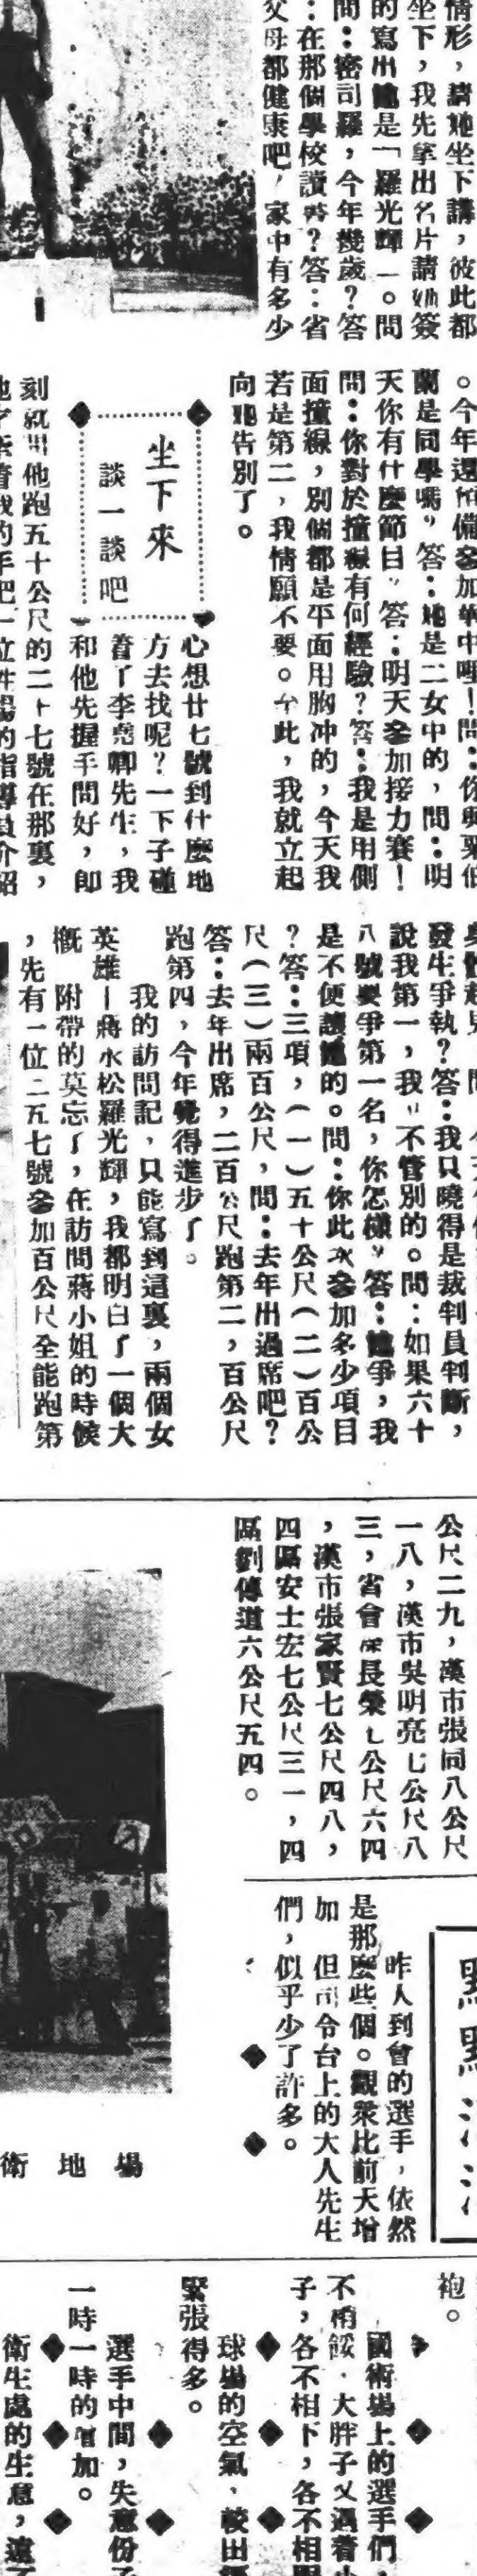 情形，請她坐下講，彼此都
坐下，我先拿出名片請她簽
的寫出她是「羅光輝」。問
問：密司羅，今年幾歲？答
：在那個學校讀書？答：省
父母都健康吧，家中有多少
。今年還預備參加華中哩！問：你與
蘭是同學嗎？答：她是二女中的，問：明
天你有什麼節目？答：明天參加接力賽！
問：你對於撞線有何經驗？答：我是用側
面撞線，別個都是平面用胸冲的，今天我
若是第二，我情願不要。至此，我就立起
向她告別了。
坐下來
談一談吧
心想廿七號到什麼地
方去找呢？一下子碰
着了李堯卿先生，我
和他先握手問好，即
刻就叫他跑五十公尺的二十七號在那裏，
發生爭執？答：我只曉得是裁判員判斷，
說我第一，我不管別的。問：如果六十
八號要爭第一名，你怎樣？答：她爭，我
是不便讓她的。問：你此次參加多少項目
？答：三項，（一）五十公尺（二）百公
尺（三）兩百公尺，問：去年出過席吧？
答：去年出席，二百公尺跑第二，百公尺
跑第四，今年覺得進步了。
我的訪問記，只能寫到這裏，兩個女
英雄—蔣水松羅光輝，我都明白了一個大
概 附帶的莫忘了，在訪問蔣小姐的時候
，先有一位二五七號參加百公尺全能跑第
公尺二九，漢市張同八公尺
一八，漢市吳明亮七公尺八
三，省會 長榮七公尺六四
，漢市張家賢七公尺四八，
四區安士宏七公尺三一，四
區劉傳道六公尺五四。
點點滴滴
昨人到會的選手，依然
是那麼些個。觀衆比前天增
加 但司令台上的大人先生
們，似乎少了許多。
衛地場
袍。
國術場上的選手們，
不稍餒，大胖子又遇着
子，各不相下，各不相
球場的空氣，較田
緊張得多。
選手中間，失意份子
一時一時的增加。
衛生處的生意，遠